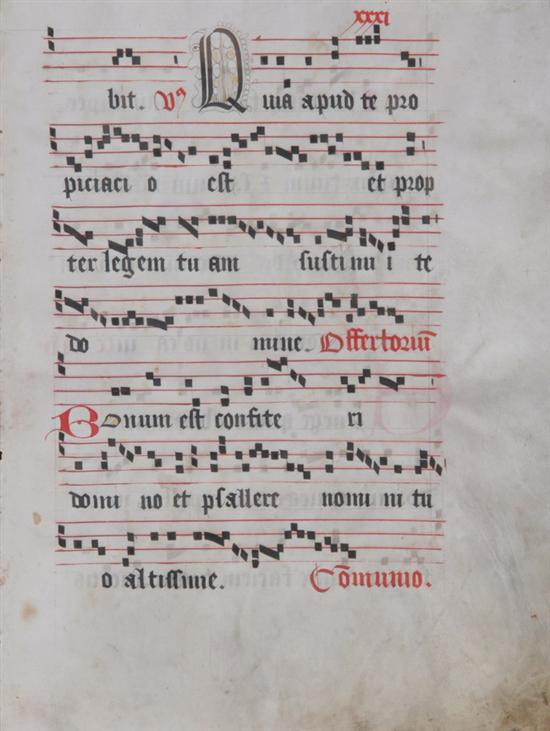 xxxi
bit. V9 Quia apud te pro
piciaci o est et prop
ter legem tu am sustinu i te
do mine. Offertoriū
Bonum est confite ri
domi no et psallere nomi ni tu
o altissime. Cōmunio.